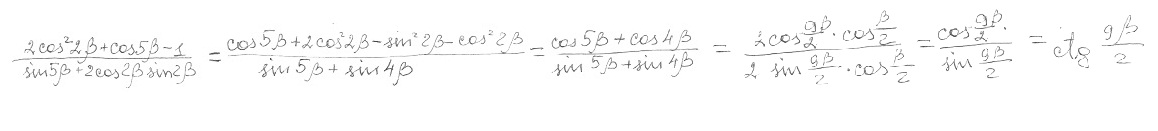 \frac{2cos²2β+cos5β-1}{sin5β+2cos2β sin2β} = \frac{cos5β+2cos²2β-sin²2β-cos²2β}{sin5β+sin4β} = \frac{cos5β+cos4β}{sin5β+sin4β} = \frac{2cos\frac{9β}{2}·cos\frac{β}{2}}{2 sin\frac{9β}{2}·cos\frac{β}{2}} = \frac{cos\frac{9β}{2}·}{sin\frac{9β}{2}} = ctg\frac{9β}{2}